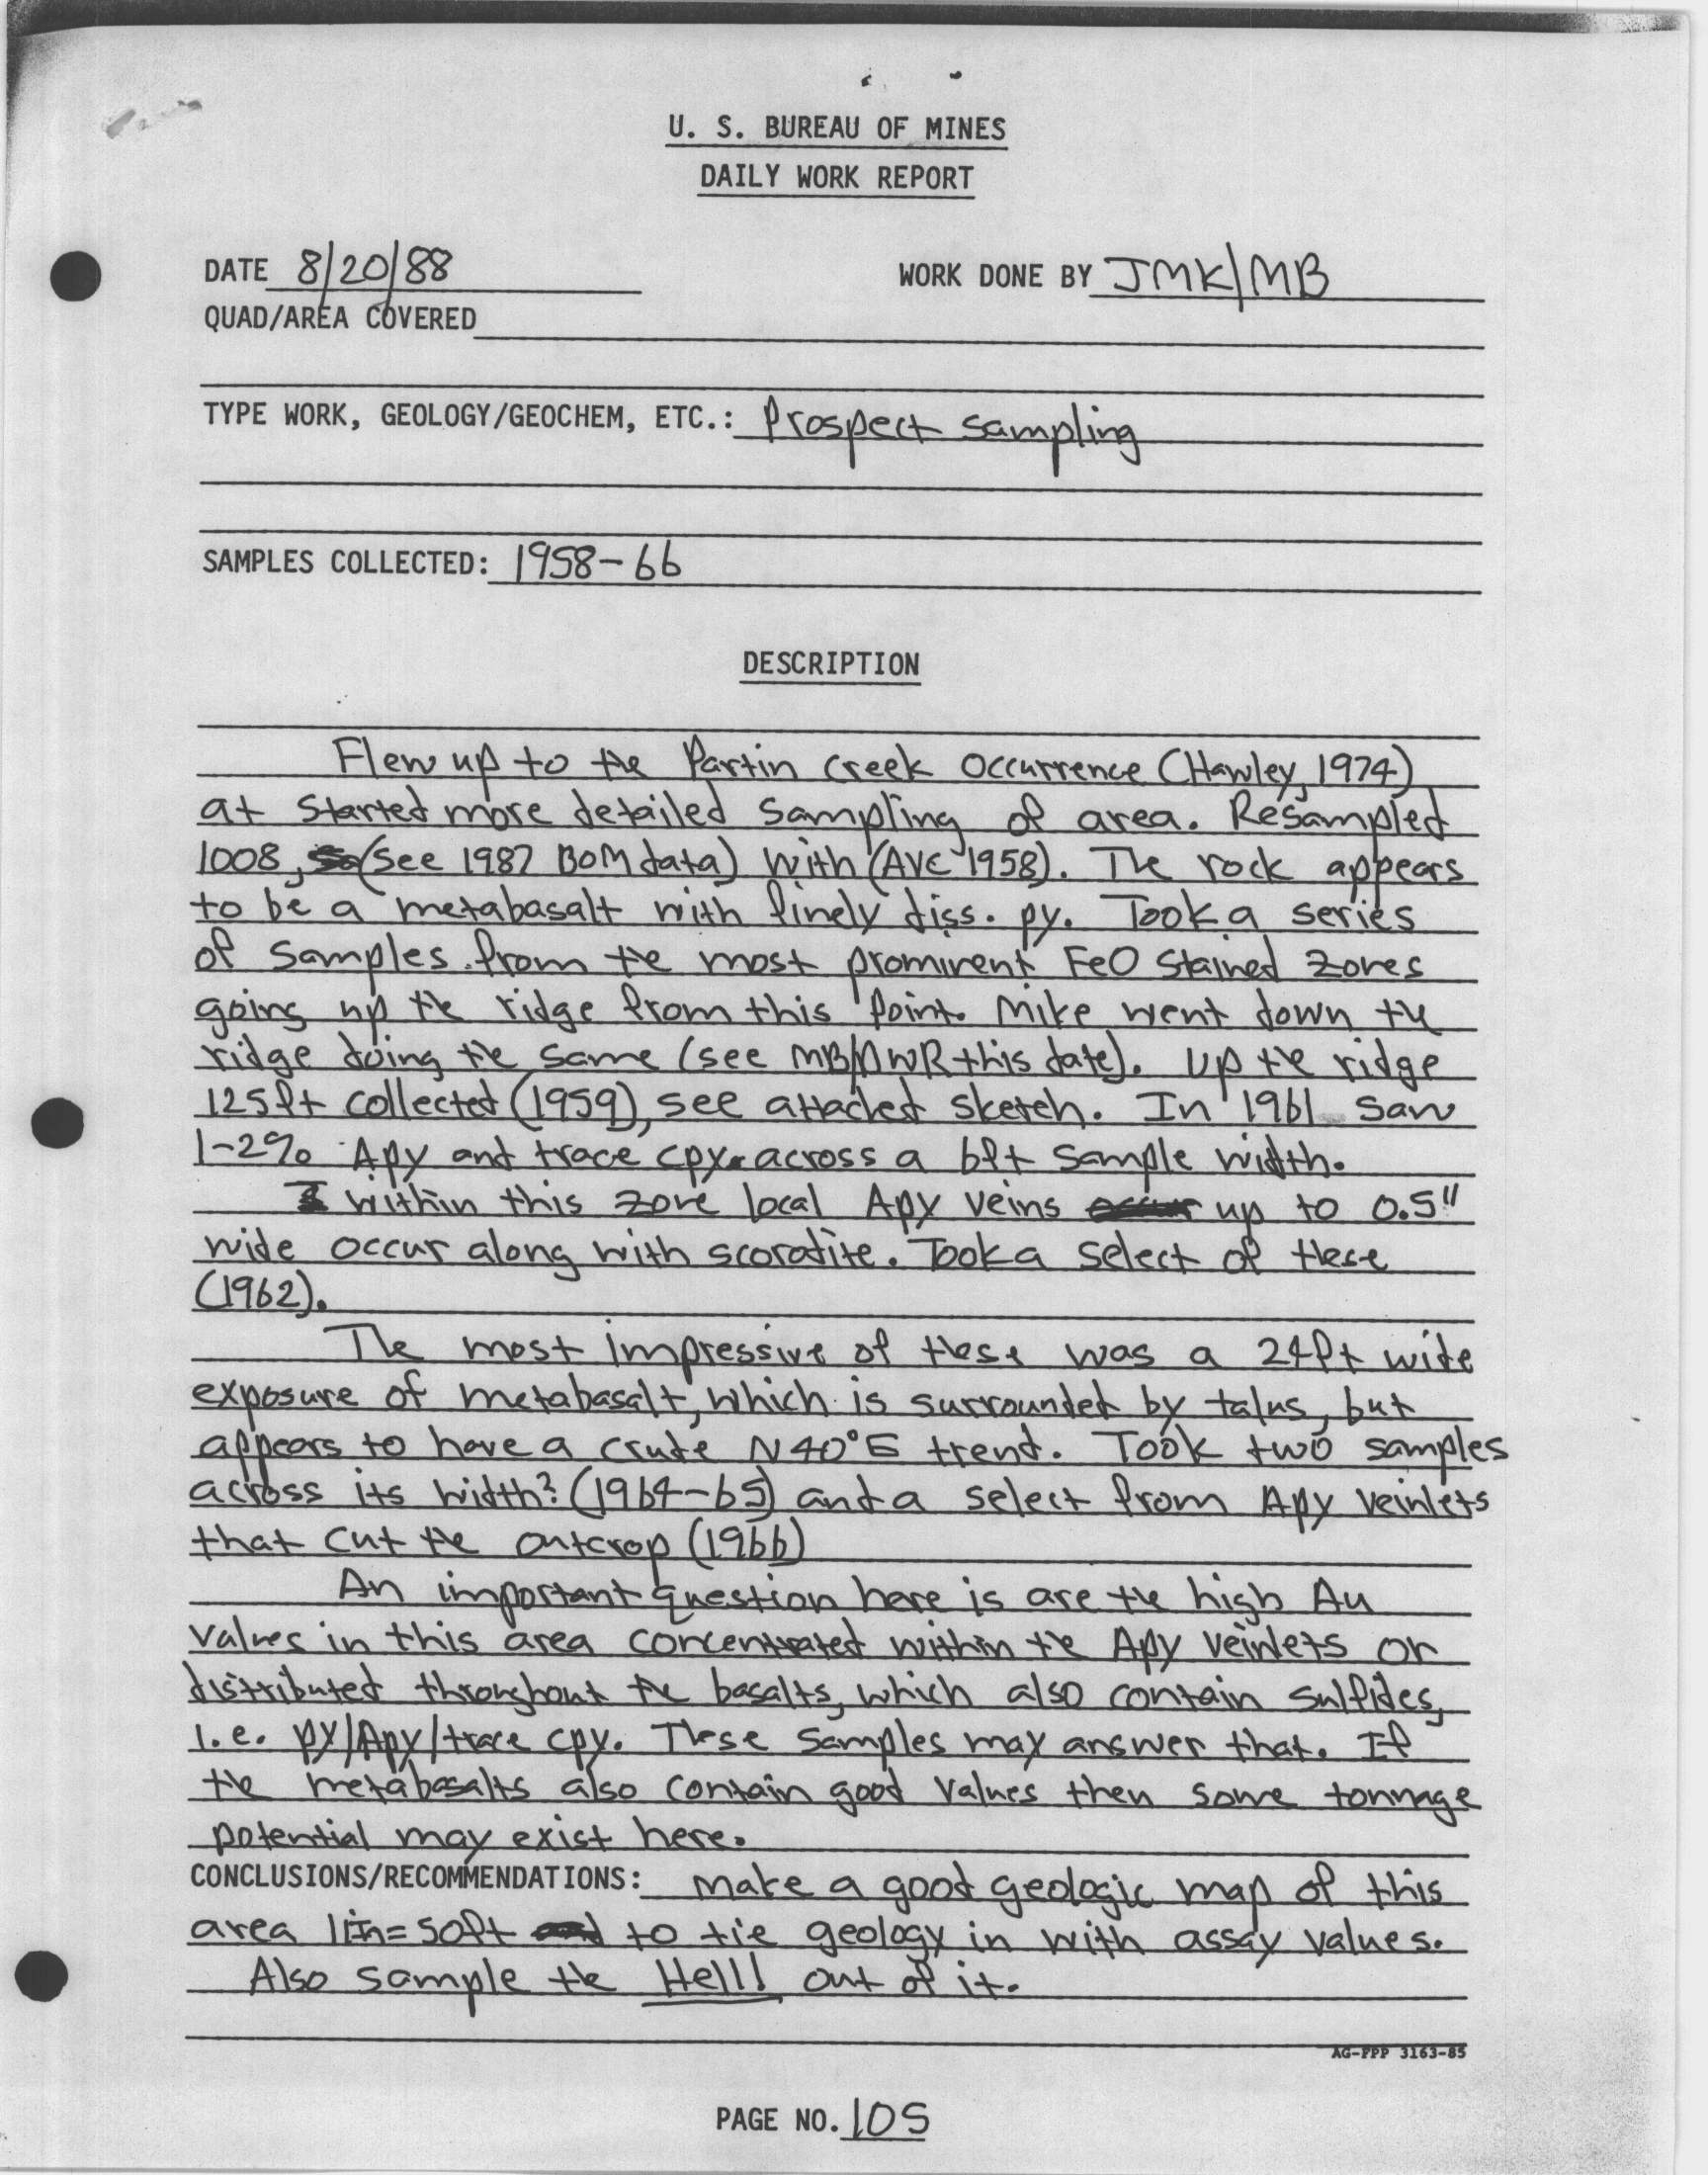 U. S. BUREAU OF MINES
DAILY WORK REPORT
DATE 8/20/88 WORK DONE BY JMK/MB
QUAD/AREA COVERED
TYPE WORK, GEOLOGY/GEOCHEM, ETC.: Prospect sampling
SAMPLES COLLECTED: 1958-66
DESCRIPTION
Flew up to the Partin Creek Occurrence (Hawley, 1974)
at started more detailed sampling of area. Resampled
1008, (see 1987 BOM data) with (AVC 1958). The rock appears
to be a metabasalt with finely diss. py. Took a series
of samples from the most prominent FeO stained zones
going up the ridge from this point. Mike went down the
ridge doing the same (see MB/DWR this date). Up the ridge
125ft collected (1959), see attached sketch. In 1961 saw
1-2% Apy and trace cpy across a 6ft sample width.
within this zone local Apy veins up to 0.5"
wide occur along with scorodite. Took a select of these
(1962).
The most impressive of these was a 24ft wide
exposure of metabasalt, which is surrounded by talus, but
appears to have a crude N40°E trend. Took two samples
across its width? (1964-65) and a select from Apy veinlets
that cut the outcrop (1966)
An important question here is are the high Au
values in this area concentrated within the Apy veinlets or
distributed throughout the basalts, which also contain sulfides,
i.e. py/Apy/trace cpy. These samples may answer that. If
the metabasalts also contain good values then some tonnage
potential may exist here.
CONCLUSIONS/RECOMMENDATIONS: make a good geologic map of this
area 1in=50ft to tie geology in with assay values.
Also sample the Hell! out of it.
AG-FPP 3163-85
PAGE NO. 105